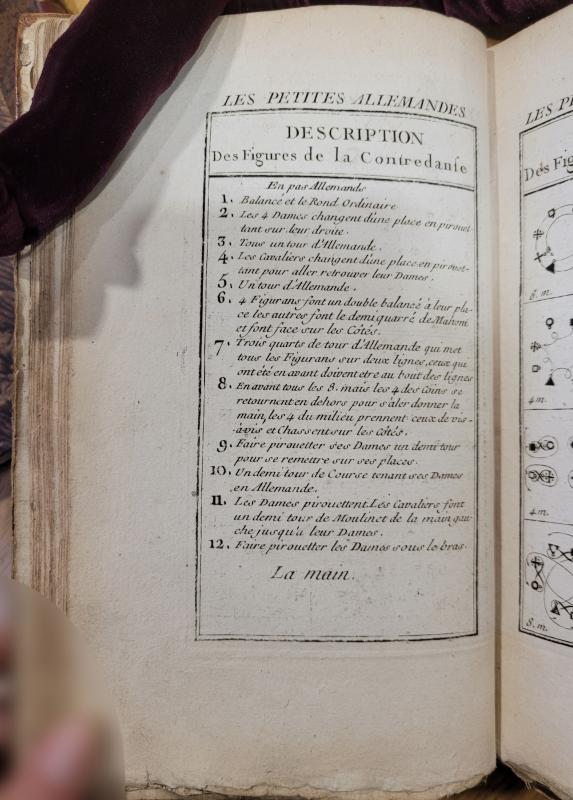 LES PETITES ALLEMANDES
DESCRIPTION
Des Figures de la Contredanſe
En pas Allemande
1. Balancé et le Rond Ordinaire
2. Les 4 Dames changent d'une place en pirouet-
tant sur leur droite.
3. Tous un tour d'Allemande.
4. Les Cavaliers changent d'une place en pirouet-
tant pour aller retrouver leur Dames.
5. Un tour d'Allemande.
6. 4 Figurans font un double balancé à leur pla-
ce les autres font le demi quarré de Mahoni
et font face sur les Côtés.
7. Trois quarts de tour d'Allemande qui met
tous les Figurans sur deux lignes, ceux qui
ont été en avant doivent etre au bout des lignes
8. En avant tous les 8. mais les 4 des Coins se
retournent en dehors pour s'aler donner la
main, les 4 du milieu prennent ceux de vis-
àvis et Chassent sur les Côtés.
9. Faire pirouetter ses Dames un demi tour
pour se remettre sur ses places.
10. Un demi tour de Course tenant ses Dames
en Allemande.
11. Les Dames pirouettent Les Cavaliers font
un demi tour de Moulinet de la main gau-
che jusqu'à leur Dames.
12. Faire pirouetter les Dames sous le bras.
La main.
LES
Des Fig
6. m.
4 m.
4. m.
8. m.